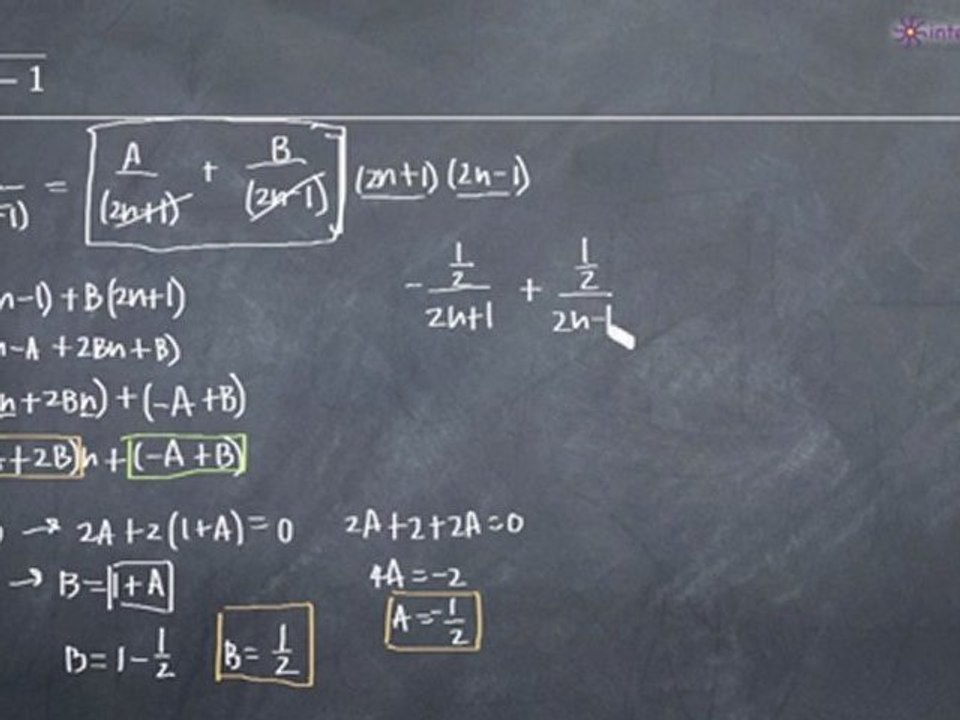 inte
- 1
-1) = A/(2n+1) + B/(2n-1) (2n+1)(2n-1)
- 1/2/2n+1 + 1/2/2n-1
n-1) + B(2n+1)
n-A + 2Bn + B)
n + 2Bn) + (-A + B)
+ 2B)n + (-A + B)
) → 2A + 2(1+A) = 0 2A + 2 + 2A = 0
→ B = 1 + A 4A = -2
A = -1/2
B = 1 - 1/2 B = 1/2